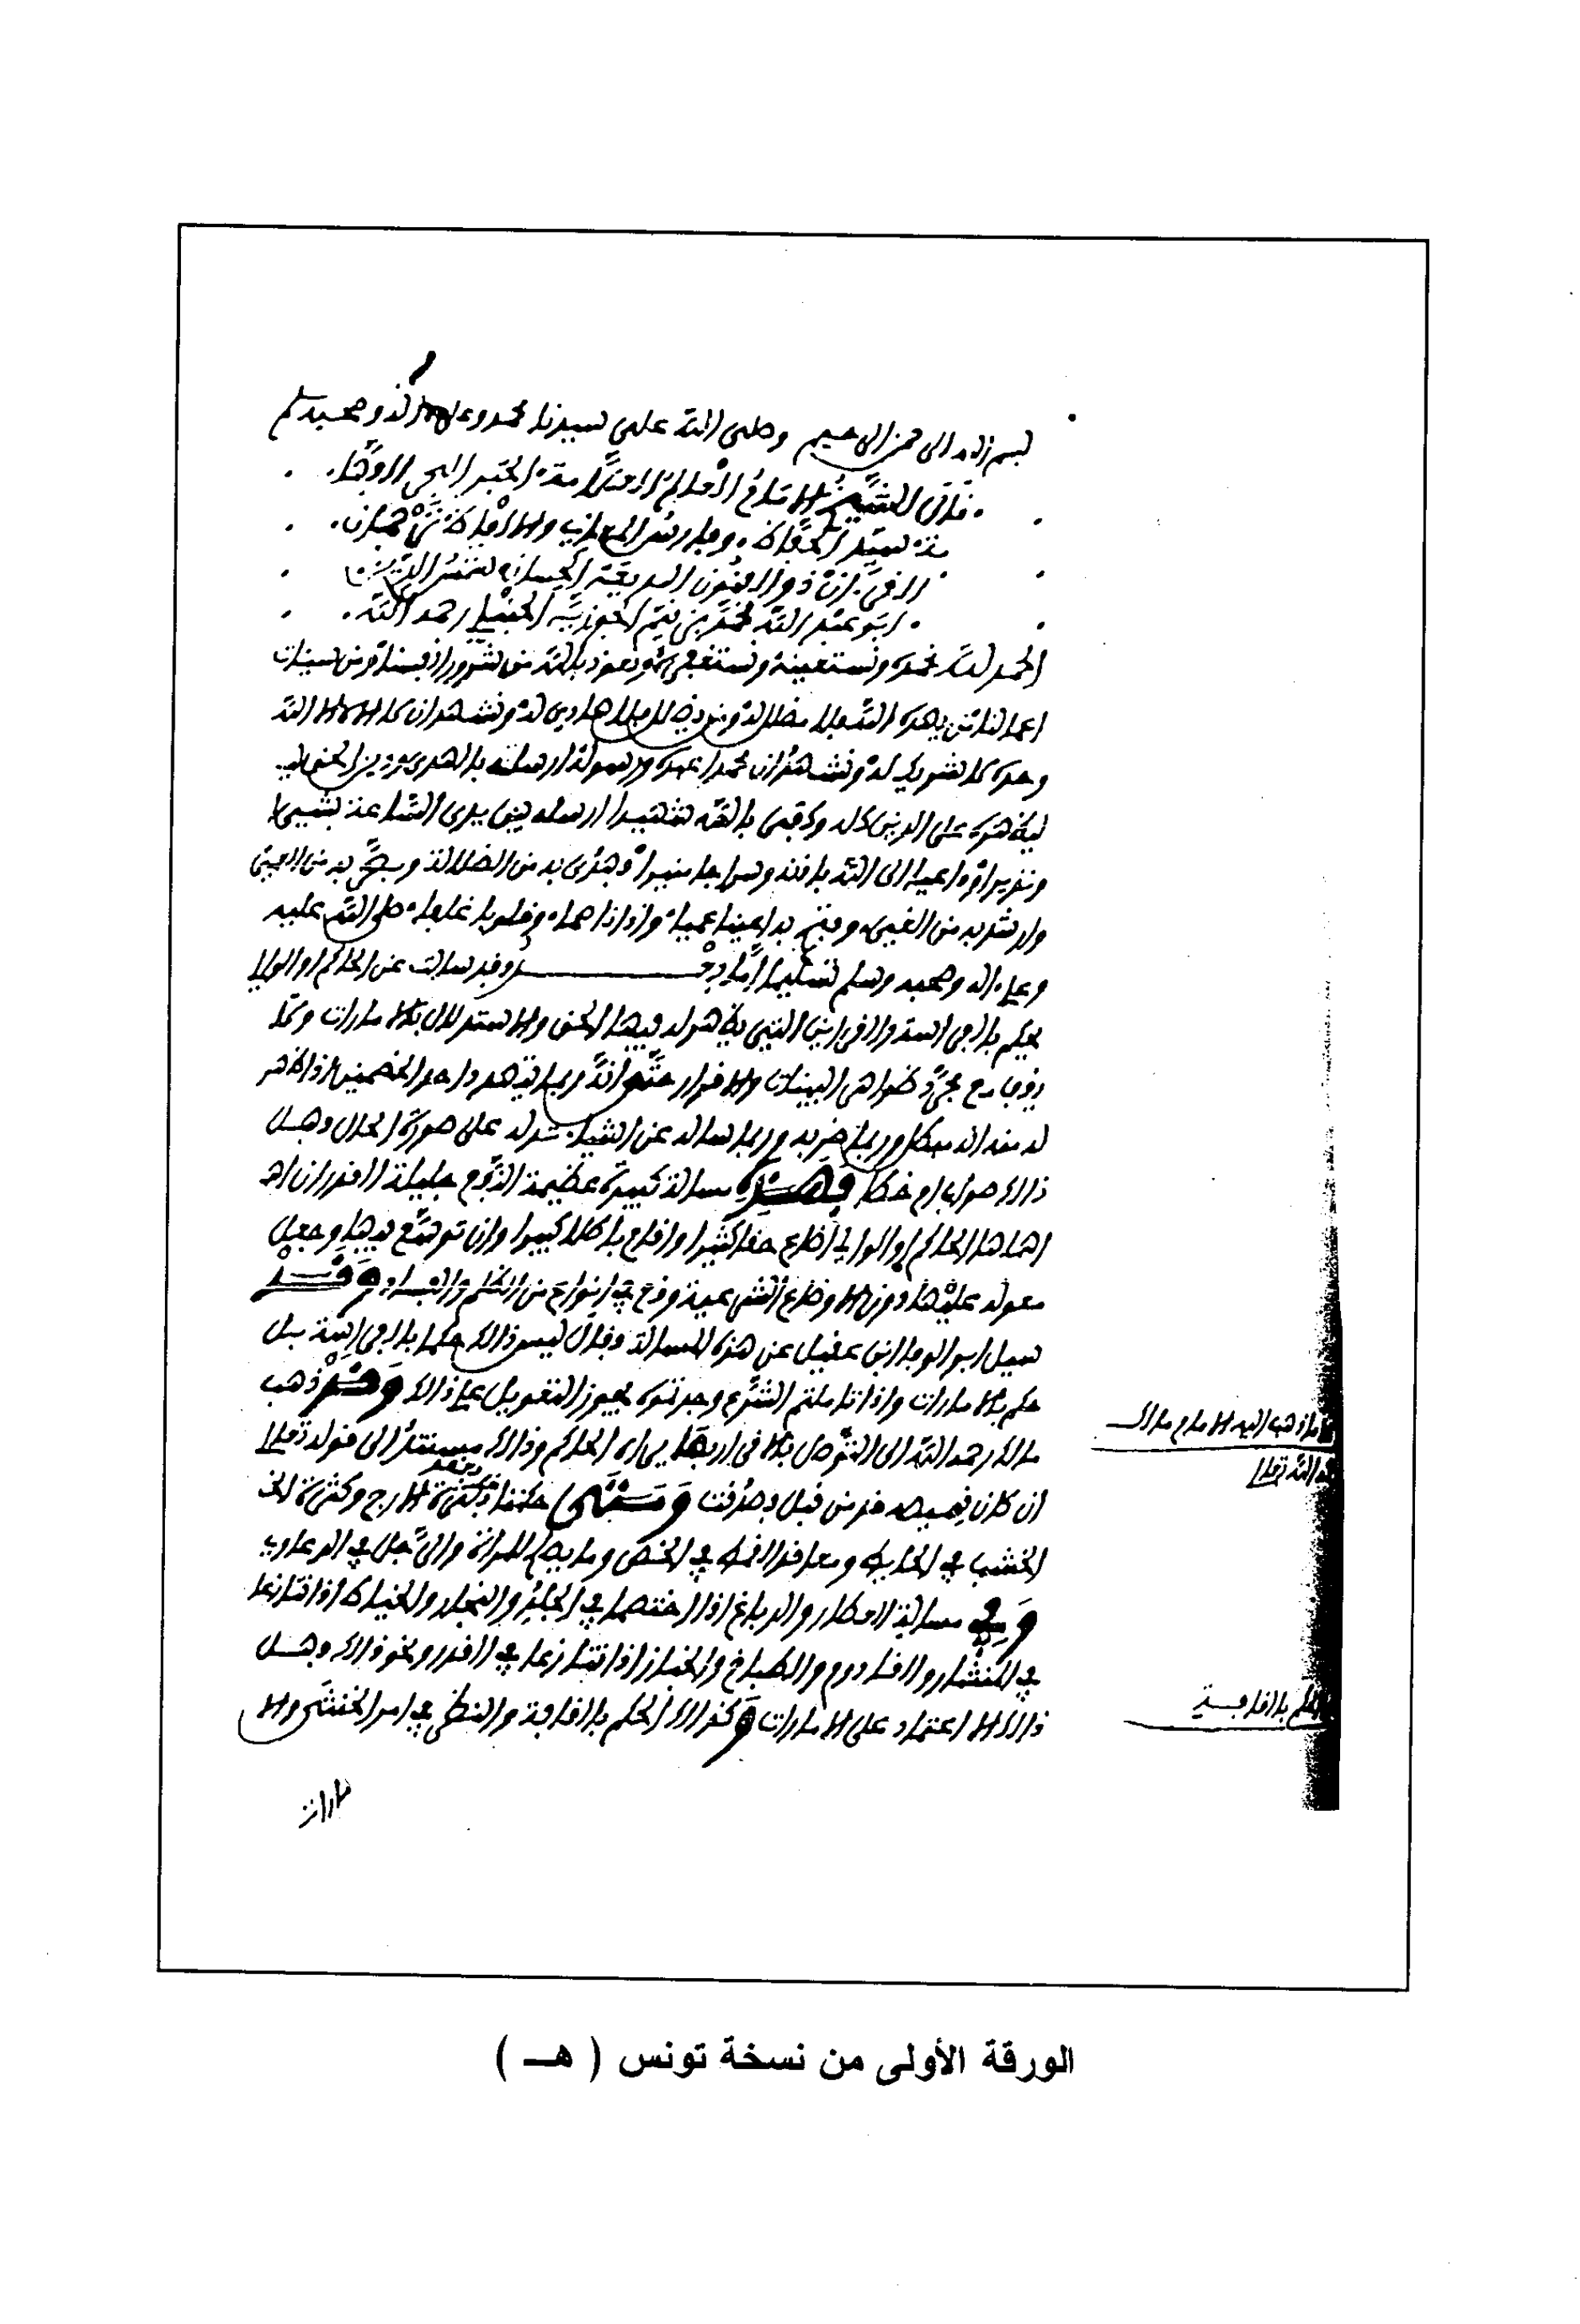 بسم الله الرحمن الرحيم وصلى الله على سيدنا محمد وعلى آله وصحبه وسلم
قال الشيخ الامام العالم العلامة الحبر البحر
سيد الحفاظ وفارس المعاني والالفاظ
ذو الفنون البديعة الحسان شمس الدين
ابو عبد الله محمد بن قيم الجوزية الحنبلي رحمه الله
الحمد لله نحمده ونستعينه ونستغفره ونعوذ بالله من شرور انفسنا ومن سيئات
اعمالنا من يهده الله فلا مضل له ومن يضلل فلا هادي له ونشهد ان لا اله الا الله
وحده لا شريك له ونشهد ان محمدا عبده ورسوله ارسله بالهدى ودين الحق
ليظهره على الدين كله وكفى بالله شهيدا ارسله بين يدي الساعة بشيرا
ونذيرا وداعيا الى الله باذنه وسراجا منيرا وهدى به من الضلالة وبصر به من العمى
وارشد به من الغي وفتح به اعينا عميا واذانا صما وقلوبا غلفا صلى الله عليه
وعلى اله وصحبه وسلم تسليما اما بعد وقد سالت عن الحاكم او الوالي
يحكم بالفراسة والقراين التي يظهر له فيها الحق والاستدلال بالامارات ولا
يقف مع مجرد ظواهر البينات والاقرار حتى انه ربما يتهدد احد الخصمين اذا ظهر
له منه انه مبطل وربما ضربه وربما ساله عن اشياء تدله على صورة الحال وهل
ذالك صواب ام خطا فهذه مسالة كبيرة عظيمة النفع جليلة القدر ان
اهملها الحاكم او الوالي اضاع حقا كثيرا واقام باطلا كبيرا وان توسع فيها وجعل
معوله عليها دون الاوضاع الشرعية وقع في انواع من الظلم والفساد وقد
سيل ابو الوفا ابن عقيل عن هذه المسالة فقال ليس ذالك حكما بالفراسة بل
حكم بالامارات واذا تاملتم الشرع وجدتموه يجوز التعويل على ذالك وقد ذهب
مالك رحمه الله الى التوصل بالاقرار بما يراه الحاكم وذالك مستند الى قوله تعالى
ان كان قميصه قد من قبل فصدقت ومتى حكمنا بعقد الازج وكثرة
الخشب في الحايط ومعاقد القمط في الخص وما يصلح للمراة والرجل في الدعاوي
وفي مسالة العطار والدباغ اذا اختصما في الجلد والنجار والخياط اذا تنازعا
في المنشار والقادوم والطباخ والخباز اذا تنازعا في القدر ونحو ذالك وهل
ذالك الا اعتماد على الامارات وكذالك الحكم بالقافة والنظر في امر الخنثى والا
مارات
ما ذهب اليه الامام مالك
الله تعالى
الحكم بالقافة
الورقة الأولى من نسخة تونس ( هـ )